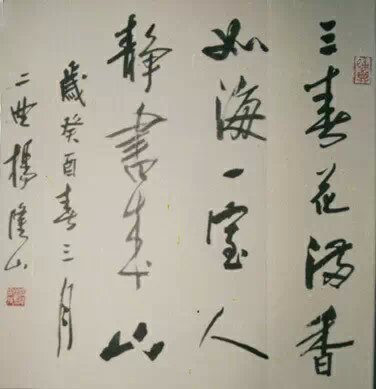 三春花滿香
如海一室人
静書山
歲癸酉春三月
二曲楊山